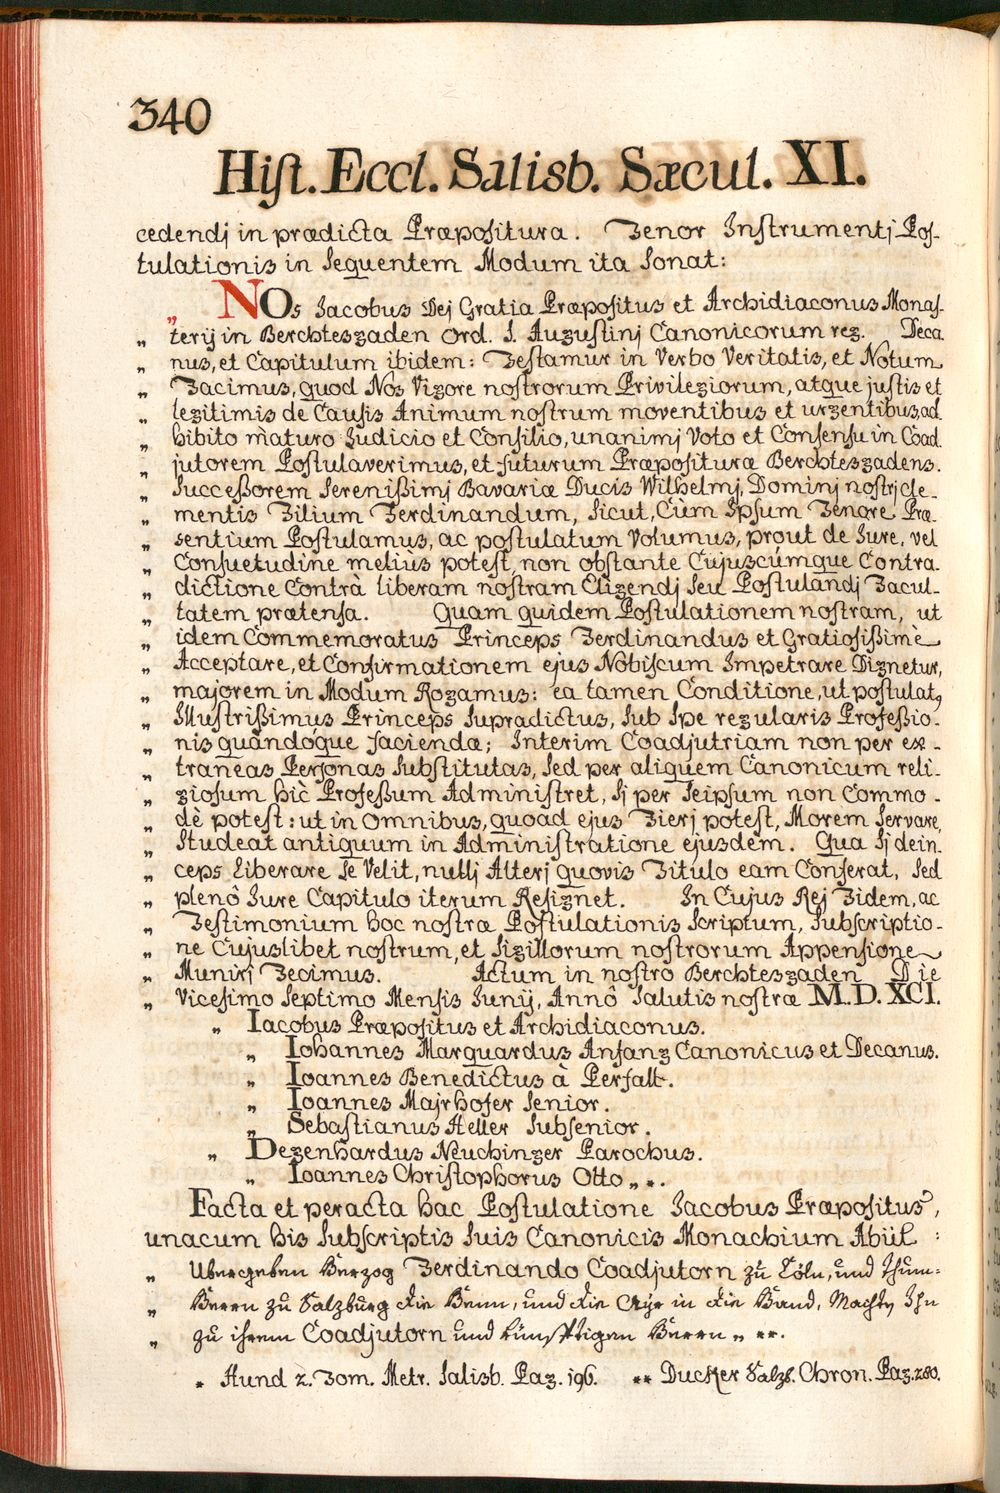 340
Hist. Eccl. Salisb. Sæcul. XI.
cedendj in prædicta Præpositura. Tenor Instrumentj Pos-
tulationis in sequentem Modum ita sonat:
„ NOs Jacobus Dej Gratia Præpositus et Archidiaconus Monas-
„ terij in Berchtesgaden Ord. S. Augustinj Canonicorum reg. Deca
„ nus, et Capitulum ibidem: Testamur in Verbo Veritatis, et Notum
„ Facimus, quod Nos Vigore nostrorum Privilegiorum, atque justis et
„ legitimis de Causis Animum nostrum moventibus et urgentibus, ad
„ hibito maturo Judicio et Consilio, unanimj Voto et Consensu in Coad
„ jutorem Postulaverimus, et futurum Præposituræ Berchtesgadens.
„ Successorem Serenissimj Bavariæ Ducis Wilhelmj, Dominj nostrj cle-
„ mentis Filium Ferdinandum, sicut, Cùm Ipsum Tenore Præ-
„ sentium Postulamus, ac postulatum Volumus, prout de Jure, vel
„ Consuetudine meliùs potest, non obstante Cujuscúmque Contra-
„ dictione Contrà liberam nostram Eligendj seu Postulandj Facul-
„ tatem prætensa. Quam quidem Postulationem nostram, ut
„ idem Commemoratus Princeps Ferdinandus et Gratiosissimè
„ Acceptare, et Confirmationem ejus Nobiscum Impetrare Dignetur,
„ majorem in Modum Rogamus: ea tamen Conditione, ut postulat9
„ Illustrissimus Princeps supradictus, sub spe regularis Professio-
„ nis quandóque faciendæ; Interim Coadjutriam non per ex-
„ traneas Personas substitutas, sed per aliquem Canonicum reli-
„ giosum hîc Professum Administret, sj per seipsum non Commo-
„ dè potest: ut in Omnibus, quoad ejus Fierj potest, Morem servare,
„ studeat antiquum in Administratione ejusdem. Qua sj dein-
„ ceps liberare se Velit, nullj Alterj quovis Titulo eam Conferat, sed
„ plenô Jure Capitulo iterum Resignet. In Cujus Rej Fidem, ac
„ Testimonium hoc nostræ Postulationis scriptum, subscriptio-
„ ne Cujuslibet nostrum, et sigillorum nostrorum Appensione
„ Munirj Fecimus. Actum in nostro Berchtesgaden Die
„ Vicesimo septimo Mensis Junij, Annô Salutis nostræ M.D.XCI.
„ Iacobus Præpositus et Archidiaconus.
„ Iohannes Marquardus Anfang Canonicus et Decanus.
„ Ioannes Benedictus à Perfalt.
„ Ioannes Majrhofer Senior.
„ Sebastianus Heller Subsenior.
„ Degenhardus Neuchinger Parochus.
„ Ioannes Christophorus Otto „ *.
Facta et peracta hac Postulatione Jacobus Præpositus,
unacum his subscriptis suis Canonicis Monachium Abiit:
„ Ubergeben Herzog Ferdinando Coadjutorn zu Cöln, und Thum-
„ Herrn zu Salzburg die Henn, und die Ayr in die Hand, Machtn Ihn
„ zu ihrem Coadjutorn und künfftigen Herrn „ **.
* Hund 2. Tom. Metr. Salisb. Pag. 196. ** Ducker Salzb. Chron. Pag. 280.